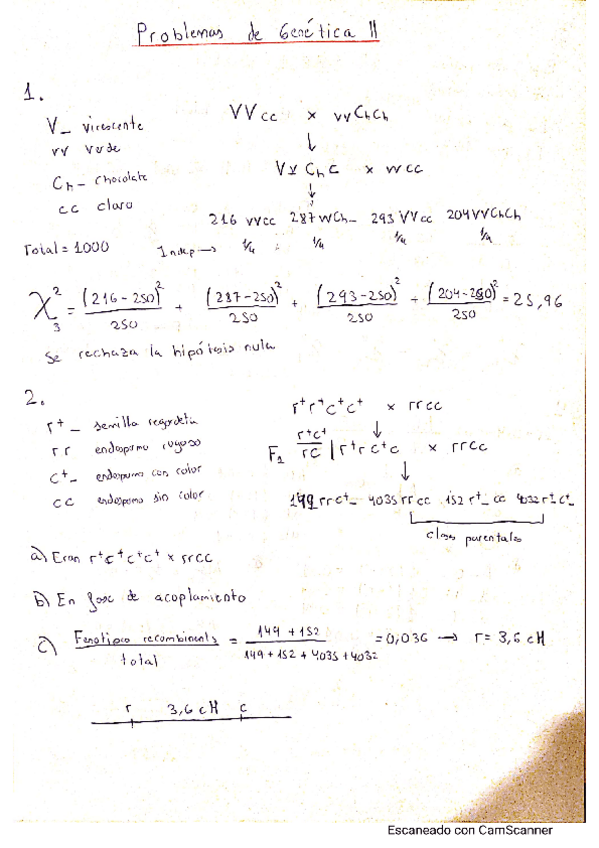 Problemas de Genética II
1.
V_ virescente
vv verde
Ch_ chocolate
cc claro
VVcc x vvChCh
↓
VvChc x vvcc
↓
216 vvcc 287 vvCh_ 293 VVcc 204 VVChCh
Total = 1000 Indep → 1/4 : 1/4 1/4 1/4
χ²₃ = (216-250)²/250 + (287-250)²/250 + (293-250)²/250 + (204-250)²/250 = 25,96
Se rechaza la hipótesis nula
2.
r⁺_ semilla regordeta
rr endospermo rugoso
c⁺_ endospermo con color
cc endospermo sin color
r⁺r⁺c⁺c⁺ x rrcc
↓
F₁ r⁺c⁺/rc | r⁺rc⁺c x rrcc
↓
149 rrc⁺_ 4035 rrcc 152 r⁺_cc 4032 r⁺_c⁺_
clases parentales
a) Eran r⁺r⁺c⁺c⁺ x rrcc
b) En fase de acoplamiento
c) Fenotipos recombinantes/total = 149+152/149+152+4035+4032 = 0,036 → r = 3,6 cM
r 3,6 cM c
Escaneado con CamScanner